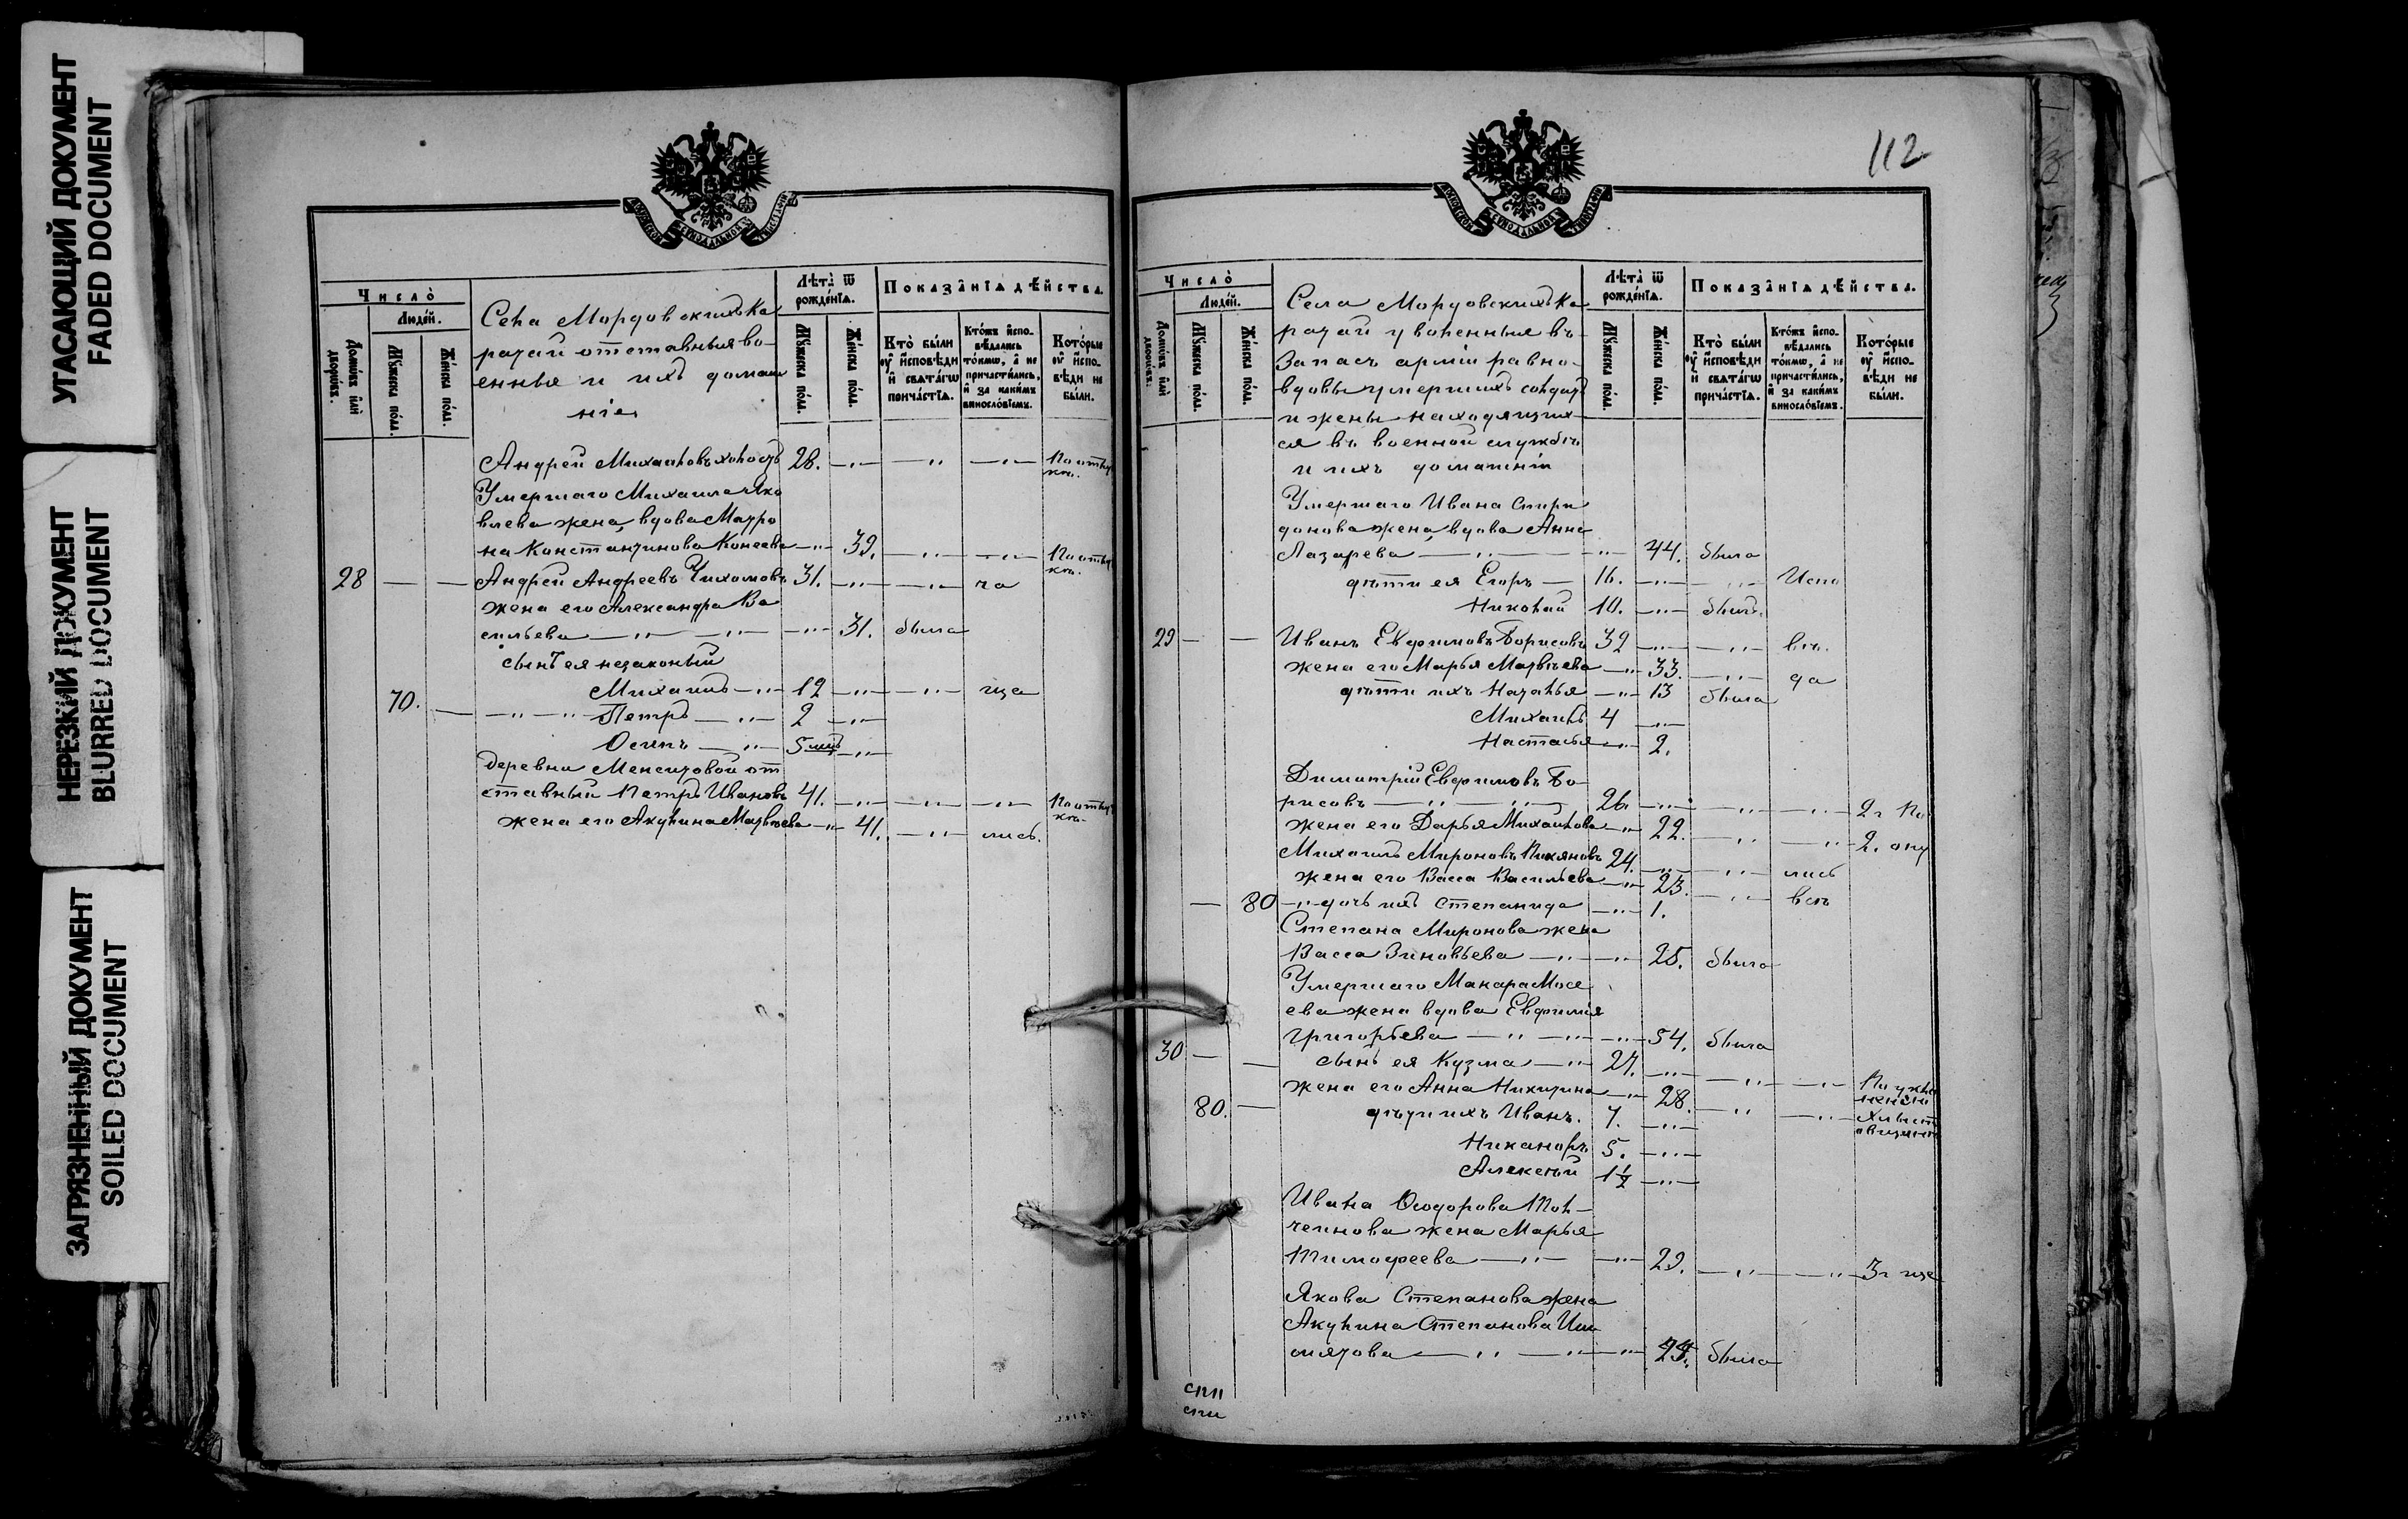 УГАСАЮЩИЙ ДОКУМЕНТ
FADED DOCUMENT
НЕРЕЗКИЙ ДОКУМЕНТ
BLURRED DOCUMENT
ЗАГРЯЗНЕННЫЙ ДОКУМЕНТ
SOILED DOCUMENT
Число̀
Людей.
Домовъ или дворовъ.
Мужеска полу.
Женска полу.
Села Мордовскихъ Ка
ратай отставныя во-
енныя и ихъ домаш
нiе
Лѣта ѿ рожденїя.
Мужеска пола.
Женска пола.
Показанїя дѣйства.
Кто были у исповѣди и святагѡ причастїя.
Ктожъ исповѣдались токмѡ, а не причастились, и за какимъ винословїемъ.
Которые у исповѣди не были.
Андрей Михайловъ холостъ 28. По отлу
кѣ.
Умершаго Михаила Яко
влева жена, вдова Матро
на Константинова 39. По отлу
кѣ.
28 Андрей Андреевъ Тихомовъ 31. ча
жена его Александра Ва
сильева 31. была
сынъ ея незаконый
Михаилъ 12 ща
70. Петръ 2
Осипъ 5 мѣ
Деревни Менситовой от
ставный Петръ Ивановъ 41. По отлу
кѣ.
жена его Акулина Матвѣева 41. лись.
112
Число̀
Людей.
Домовъ или дворовъ.
Мужеска пола.
Женска пола.
Села Мордовскихъ Ка
ратай уволенныя въ
Запасъ армiи равно
вдовы умершихъ солдатъ
и жены находящих
ся въ военной службѣ
и ихъ домашнiи
Лѣта ѿ рожденїя.
Мужеска пола.
Женска пола.
Показанїя дѣйства.
Кто были у исповѣди и святагѡ причастїя.
Ктожъ исповѣдались токмѡ, а не причастились, и за какимъ винословїемъ.
Которые у исповѣди не были.
Умершаго Ивана Спири
донова жена, вдова Анна
Лазарева 44. была
дѣти ея Егоръ 16. Испо
Николай 10. былъ.
29 Иванъ Евфимовъ Борисовъ 32 вѣ.
жена его Марья Матвѣева 33. да
дѣти ихъ Наталья 13 была
Михаилъ 4
Настасья 2.
Димитрiй Евфимовъ Бо-
рисовъ 26 2 г По
жена его Дарья Михайлова 22. 2. отл
Михаилъ Мироновъ 24. лись
жена его Васса Васильева 23. всѣ
80 дочь ихъ Степанида 1.
Степана Миронова жена
Васса Зиновьева 25. была
Умершаго Макара Мосе
ева жена вдова Евфимiя
Григорьева 54. была
30 сынъ ея Кузма 27. По укло
ненiю
жена его Анна Никитина 28.
80. дѣти ихъ Иванъ. 7.
Никаноръ 5.
Алексѣй 1½
Ивана Ѳеодорова Пол-
чеинова жена Марья
Тимофеева 29. 3 г ще
Якова Степанова жена
Акулина Степанова
была